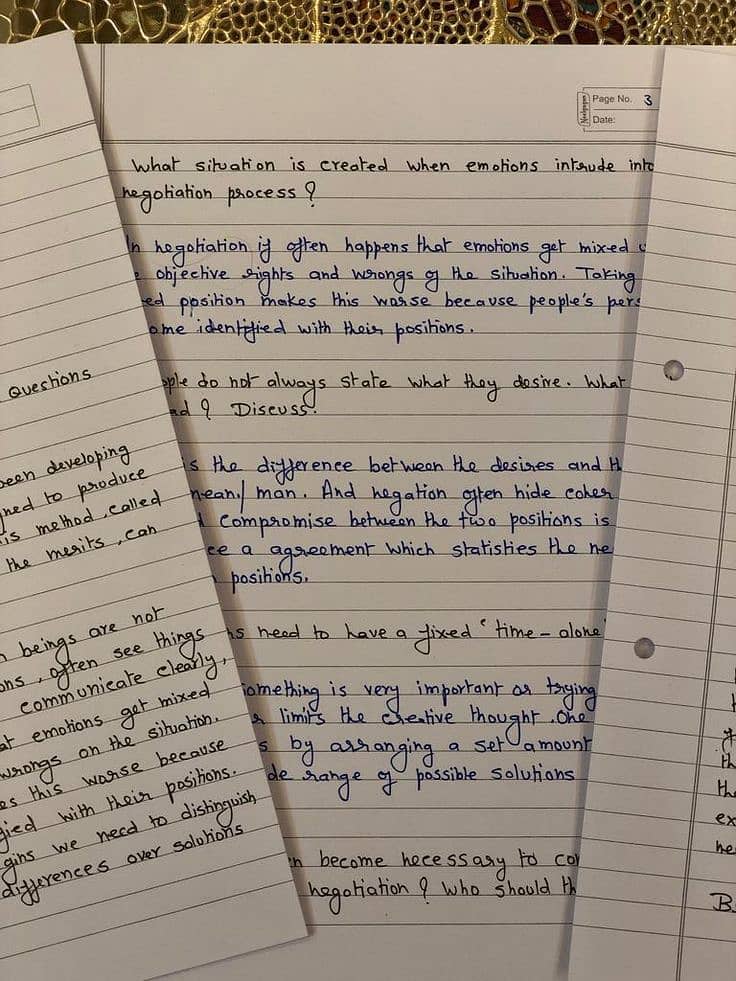 Page No. 3
Date:
What situation is created when emotions intrude into
negotiation process ?
In negotiation if often happens that emotions get mixed
objective rights and wrongs of the situation. Taking
position makes this worse because people's
identified with their positions.
do not always state what they desire. What
? Discuss.
is the difference between the desires and
mean/man. And negation often hide
compromise between the two positions is
a agreement which statisties the
positions.
need to have a fixed ' time - alone
something is very important or trying
limits the creative thought. One
by arranging a set amount
range of possible solutions
become necessary to
negotiation ? Who should
Questions
been developing
to produce
is method, called
the merits, can
beings are not
, often see things
communicate clearly,
emotions get mixed
wrongs on the situation.
this worse because
with their positions.
we need to distinguish
differences over solutions
th
the
ex
he
B